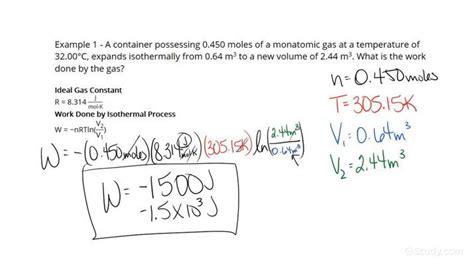 Example 1 - A container possessing 0.450 moles of a monatomic gas at a temperature of
32.00°C, expands isothermally from 0.64 m³ to a new volume of 2.44 m³. What is the work
done by the gas?
Ideal Gas Constant
R = 8.314 J/mol·K
Work Done by Isothermal Process
W = −nRTln(V₂/V₁)
W = −(0.450 moles)(8.314 J/mol·K)(305.15K) ln(2.44m³/0.64m³)
W = −1500J
−1.5×10³ J
n = 0.450 moles
T = 305.15K
V₁ = 0.64m³
V₂ = 2.44m³
Study.com